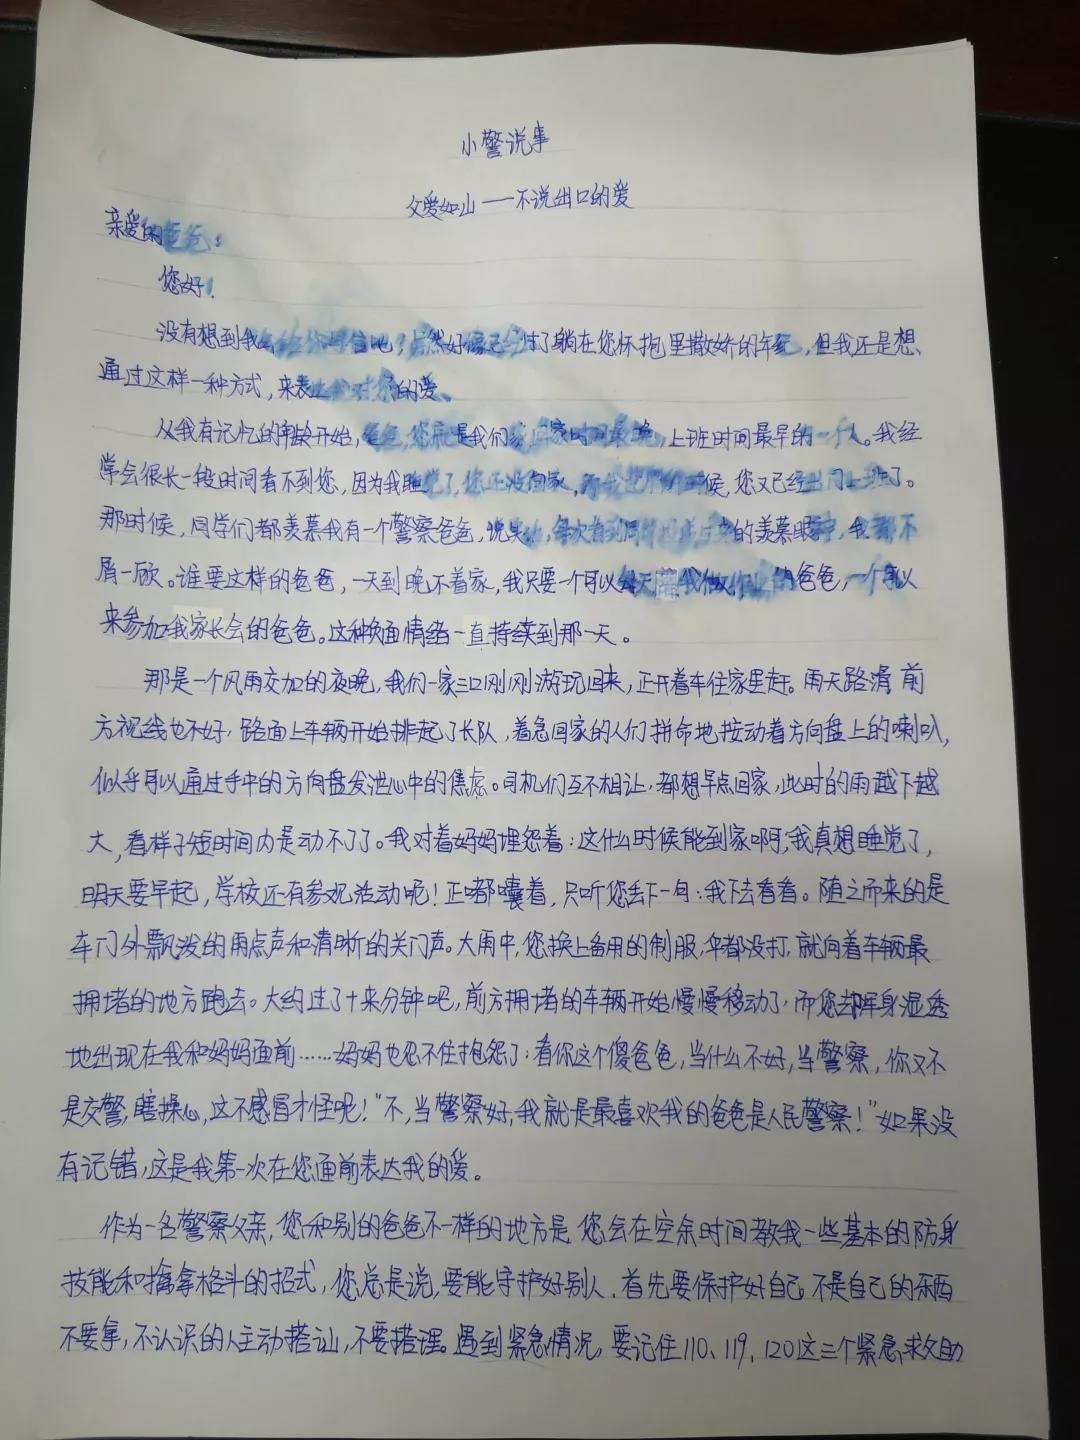 小警说事
父爱如山——不说出口的爱
亲爱的爸爸：
您好！
没有想到我会给你写信吧？虽然好像已经过了躺在您怀抱里撒娇的年纪，但我还是想、
通过这样一种方式，来表达我对您的爱、
从我有记忆的年龄开始，爸爸，您就是我们家回家时间最晚，上班时间最早的一个人。我经
常会很长一段时间看不到您，因为我睡觉了，您还没回家，等我起床的时候，您又已经出门上班了。
那时候，同学们都羡慕我有一个警察爸爸，说实话，每次看到同学的羡慕眼神，我都不
屑一顾。谁要这样的爸爸，一天到晚不着家，我只要一个可以每天陪我做作业的爸爸，一个可以
来参加我家长会的爸爸。这种负面情绪一直持续到那一天。
那是一个风雨交加的夜晚，我们一家三口刚刚游玩回来，正开着车往家里赶。雨天路滑前
方视线也不好，路面上车辆开始排起了长队，着急回家的人们拼命地按动着方向盘上的喇叭，
似乎可以通过手中的方向盘发泄心中的焦虑。司机们互不相让，都想早点回家，此时的雨越下越
大，看样子短时间内是动不了了。我对着妈妈埋怨着：这什么时候能到家啊，我真想睡觉了，
明天要早起，学校还有参观活动呢！正嘟囔着，只听您丢下一句：我下去看看。随之而来的是
车门外飘泼的雨点声和清晰的关门声。大雨中，您换上备用的制服，伞都没打，就向着车辆最
拥堵的地方跑去。大约过了十来分钟吧，前方拥堵的车辆开始慢慢移动了，而您却浑身湿透
地出现在我和妈妈面前……妈妈也忍不住抱怨了：看你这个傻爸爸，当什么不好，当警察，你又不
是交警，瞎操心，这不感冒才怪呢！"不，当警察好，我就是最喜欢我的爸爸是人民警察！"如果没
有记错，这是我第一次在您面前表达我的爱。
作为一名警察父亲，您和别的爸爸不一样的地方是 您会在空余时间教我一些基本的防身
技能和擒拿格斗的招式，您总是说，要能守护好别人，首先要保护好自己。不是自己的东西
不要拿，不认识的人主动搭讪，不要搭理。遇到紧急情况，要记住110、119、120这三个紧急救助